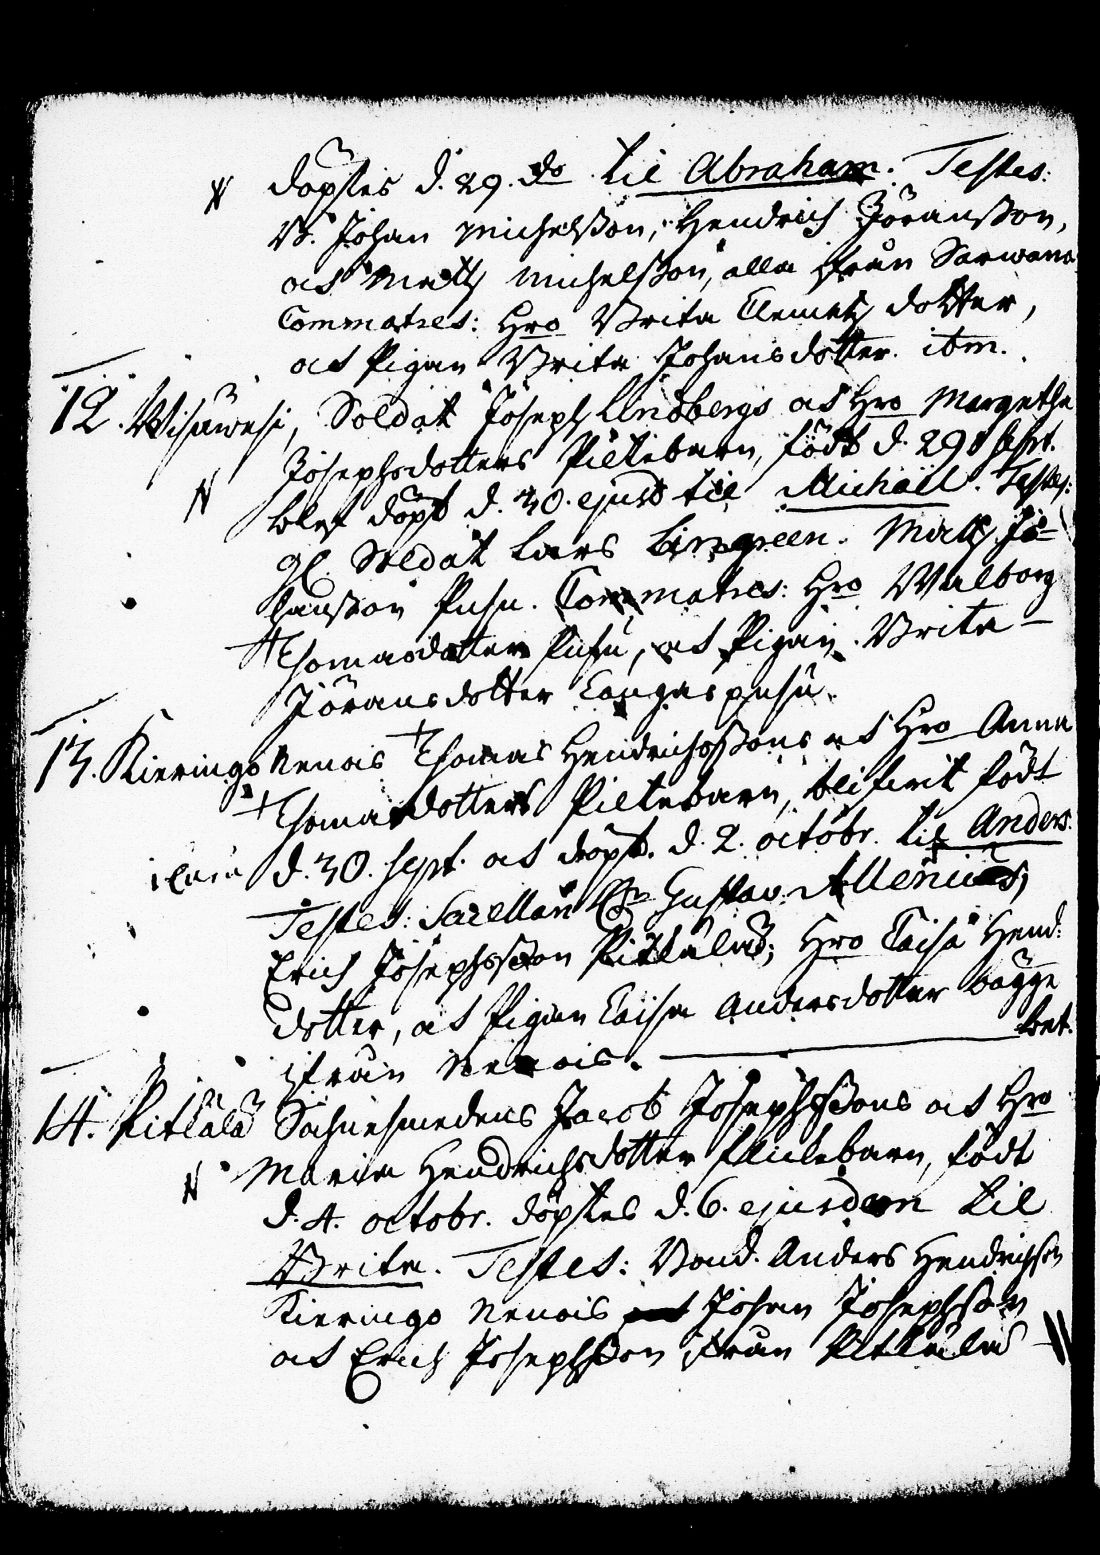 N döptes d. 29. do til Abraham. Testes:
B. Johan Michelsson, Hendrich Jöransson,
at Matts Michelsson, alla ifrån Sarwana
Commatres: Hro Brita Clemetz dotter,
at Pigan Brita Johansdotter. itm.
12. Wisawesi, Soldat Joseph Lindbergs at Hro Margetha
Josephsdotters Piltebarn, födt d. 29 Sept.
N blef döpt d. 30. ejusd til Michaël. Testes:
gl. Soldat Lars Lingreen. Matts Jo-
hansson Pusu. Commatres: Hro Walborg
Thomasdotter Pusu, at Pigan Brita
Jöransdotter Cangaspusu.
13. Kieringo Nenois Thomas Hendrichssons at Hro Anna
Thomasdotters Piltebarn, blifwit födt
d. 30. Sept. at döpt. d. 2. octobr. til Anders.
Testes: Sacellan Hr Gustav Allenius,
Erich Josephsson Pitkälä; Hro Caisa Hend:
dotter, at Pigan Caisa Andersdotter bägge
ifrån Nenois.
14. Pitkälä Sochnesmedens Jacob Josephssons at Hro
N Maria Hendrichsdotter flickebarn, födt
d. 4. octobr. döptes d. 6. ejusdem til
Brita. Testes: Bond. Anders Hendrichsson
Kieringo Nenois Johan Josephson
at Erich Josephsson ifrån Pitkälä